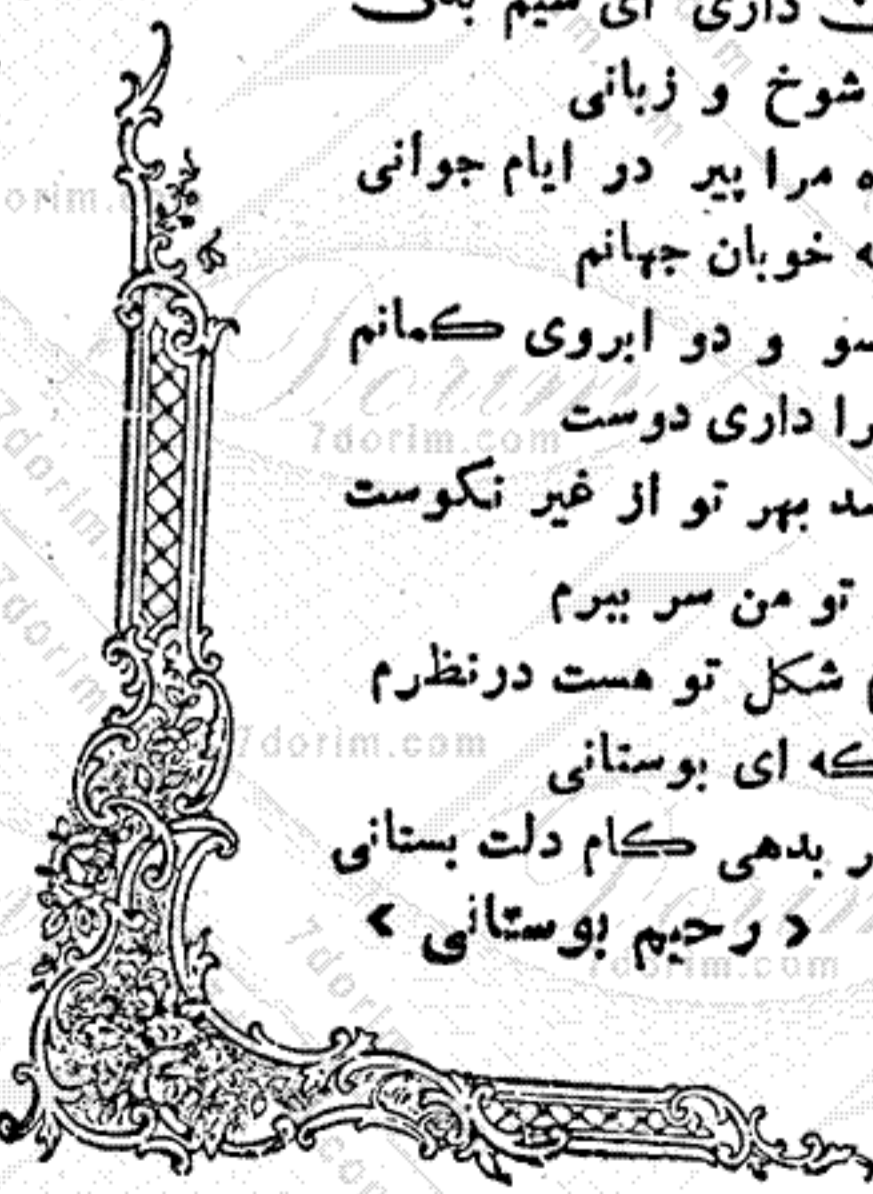 داری ای سیم
شوخ و زبانی
مرا پیر در ایام جوانی
خوبان جهانم
و دو ابروی کمانم
را داری دوست
بهر تو از غیر نکوست
تو من سر ببرم
شکل تو هست درنظرم
که ای بوستانی
بدهی کام دلت بستانی
« رحیم بوستانی »
7dorim.com
7dorim.com
7dorim.com